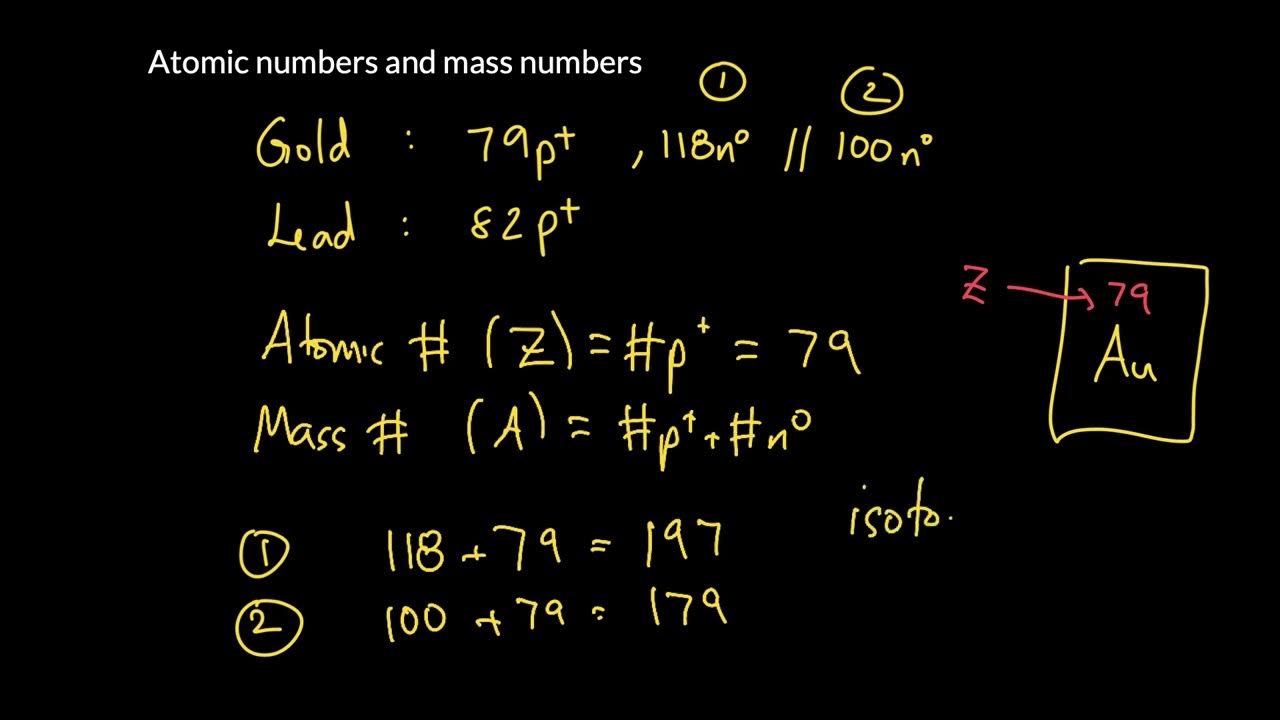 Atomic numbers and mass numbers
① ②
Gold : 79p⁺ , 118n⁰ // 100n⁰
Lead : 82p⁺
Z → 79
Au
Atomic # (Z) = #p⁺ = 79
Mass # (A) = #p⁺ + #n⁰
isoto.
① 118 + 79 = 197
② 100 + 79 = 179